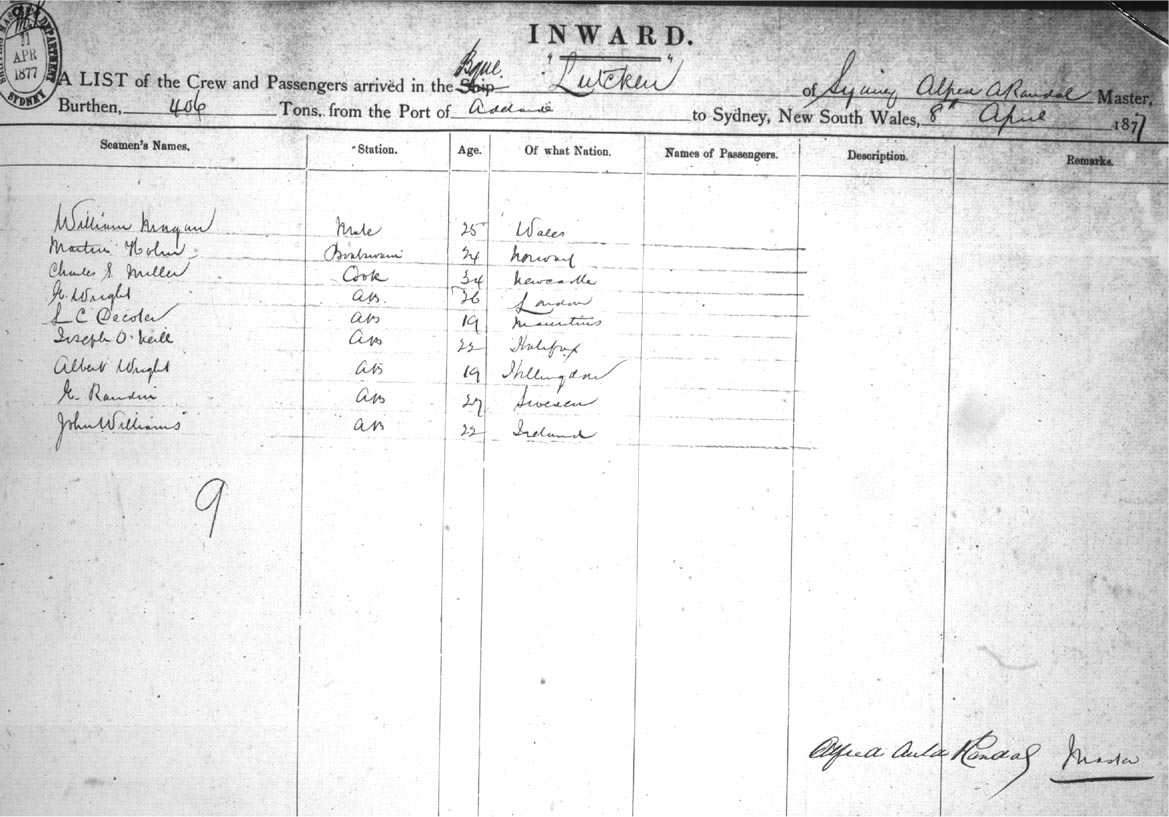 INWARD.
11
APR
1877
SYDNEY
A LIST of the Crew and Passengers arrived in the Ship Bque. "Lutken" of Sydney Alfred A Randal Master,
Burthen, 406 Tons, from the Port of Adelaide to Sydney, New South Wales, 8th April 1877
Seamen's Names. Station. Age. Of what Nation. Names of Passengers. Description. Remarks.
William Mate 25 Wales
Martin Holm Boatswain 24 Norway
Charles S Miller Cook 34 Newcastle
G. Wright AB 26 London
L C Decoler AB 19 Mauritius
Joseph O'Neill AB 22 Halifax
Albert Wright AB 19 Hillingdon
G. AB 27 Sweden
John Williams AB 22 Ireland
9
Alfred Randal Master